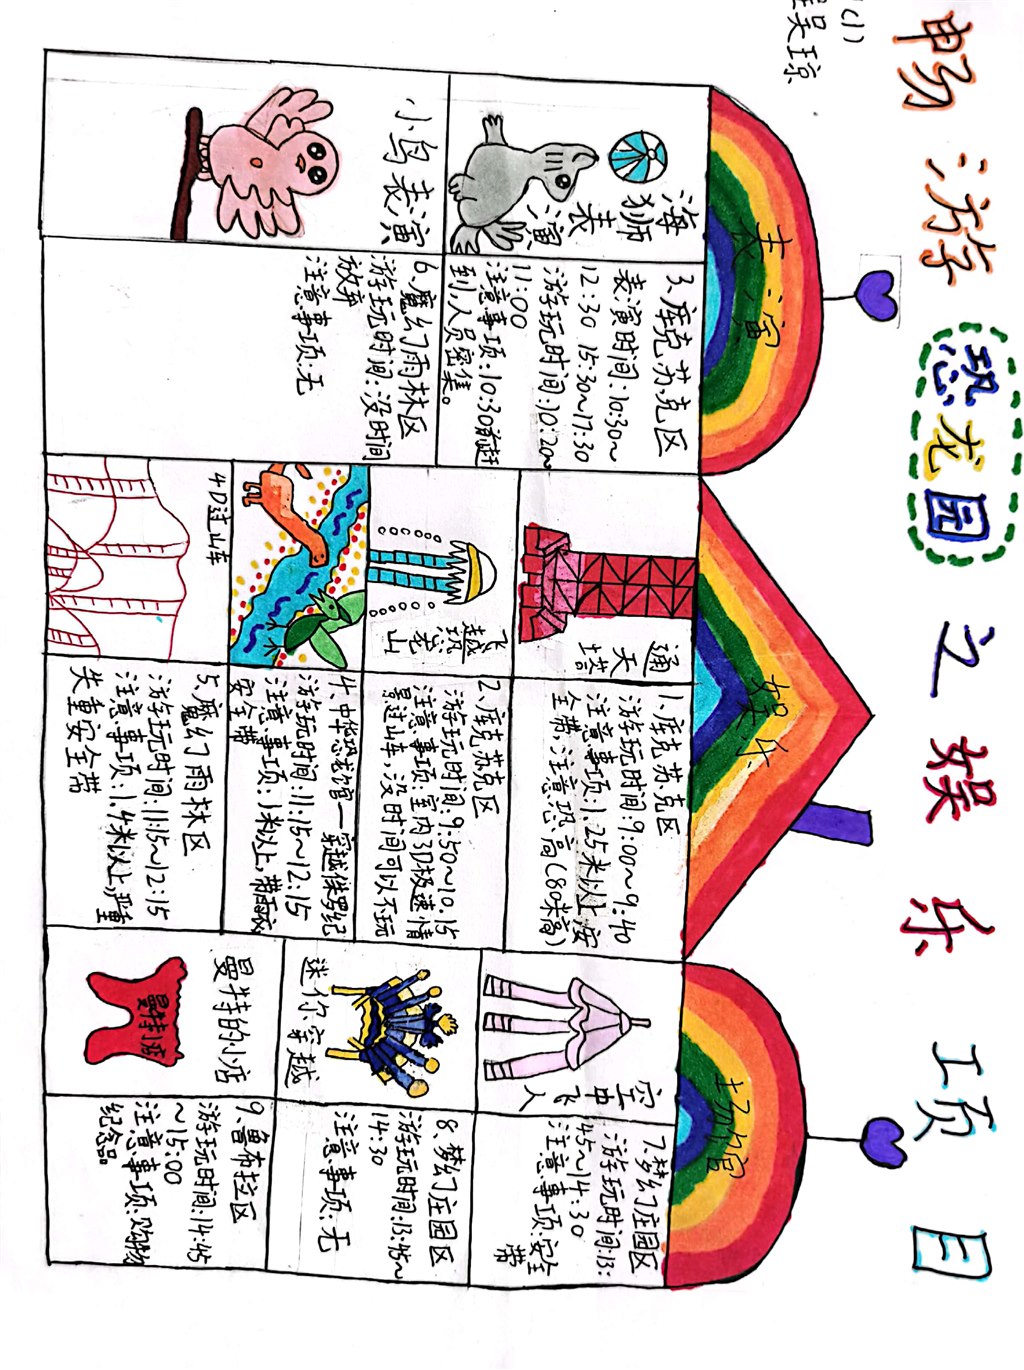 畅游恐龙园之娱乐项目
(1)
吴琼
表演
海狮
表演
3.库克苏克区
表演时间:10:30~
12:30 15:30~17:30
游玩时间:10:20~
11:00
注意事项:10:30前赶
到,人员密集。
小鸟表演
6.魔幻雨林区
游玩时间:没时间
放弃
注意事项:无
娱乐
通天塔
1.库克苏克区
游玩时间:9:00~9:40
注意事项:1.25米以上,安
全带,注意恐高(80米高)
飞越恐龙山
2.库克苏克区
游玩时间:9:50~10.15
注意事项:室内3D极速情
景过山车,没时间可以不玩
4.中华恐龙馆—穿越侏罗纪
游玩时间:11:15~12:15
注意事项:1米以上,带雨衣
安全带
4D过山车
5.魔幻雨林区
游玩时间:11:15~12:15
注意事项:1.4米以上,严重
失重安全带
场馆
空中飞人
7.梦幻庄园区
游玩时间:13:
45~14:30
注意事项:安全
带
迷你穿越
8.梦幻庄园区
游玩时间:13:45~
14:30
注意事项:无
曼特的小店
曼特小店
9.鲁布拉区
游玩时间:14:45
~15:00
注意事项:购物
纪念品